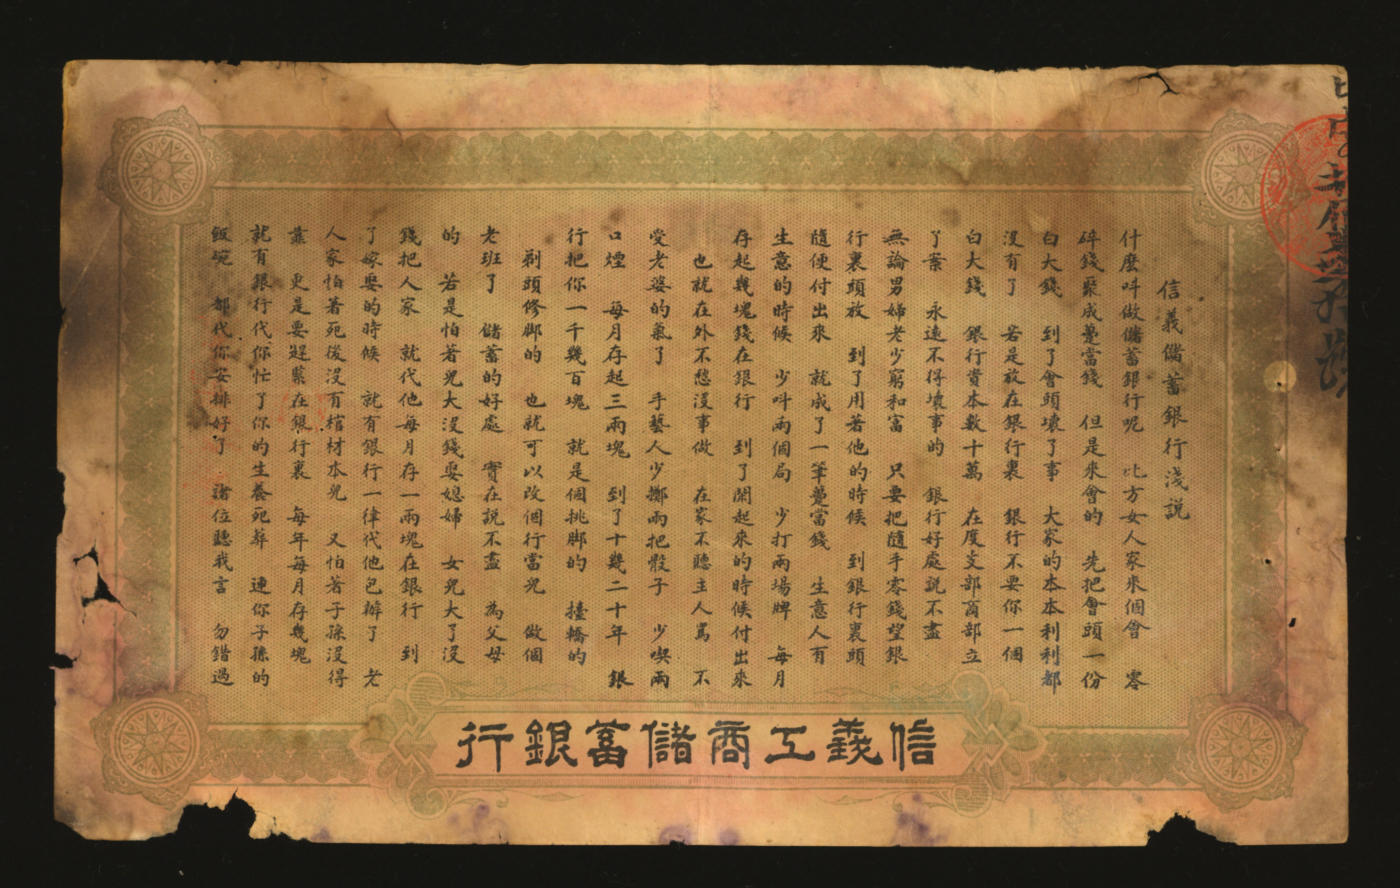 信義儲蓄銀行淺説
什麽呌做儲蓄銀行呢 比方女人家來個會 零
碎錢聚成躉當錢 但是來會的 先把會頭一份
白大錢 到了會頭壞了事 大家的本本利利都
沒有了 若是放在銀行裏 銀行不要你一個
白大錢 銀行資本數十萬 在度支部商部立
了案 永遠不得壞事的 銀行好處説不盡
無論男婦老少窮和富 只要把隨手零錢望銀
行裏頭放 到了用著他的時候 到銀行裏頭
隨便付出來 就成了一筆躉當錢 生意人有
生意的時候 少呌兩個局 少打兩場牌 每月
存起幾塊錢在銀行 到了閑起來的時候付出來
也就在外不愁沒事做 在家不聽主人罵 不
受老婆的氣了 手藝人少擲兩把骰子 少喫兩
口煙 每月存起三兩塊 到了十幾二十年 銀
行把你一千幾百塊 就是個挑脚的 擡轎的
剃頭修脚的 也就可以改個行當兒 做個
老班了 儲蓄的好處 實在説不盡 為父母
的 若是怕着兒大沒錢娶媳婦 女兒大了沒
錢把人家 就代他每月存一兩塊在銀行 到
了嫁娶的時候 就有銀行一律代他包辦了 老
人家怕着死後沒有棺材本兒 又怕着子孫沒得
靠 更是要趕緊在銀行裏 每年每月存幾塊
就有銀行代你忙了你的生養死葬 連你子孫的
飯碗 都代你安排好了 諸位聽我言 勿錯過
信義工商儲蓄銀行